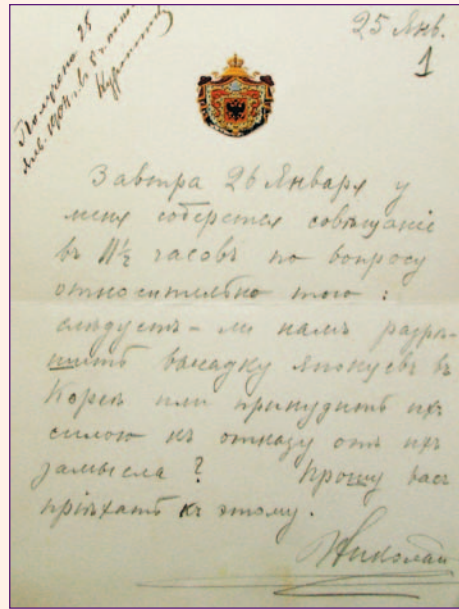 Получено 25
Янв. 1904 г. в 5
25 Янв.
1
Завтра 26 Января у
меня соберется совѣщаніе
въ 11½ часовъ по вопросу
относительно того:
слѣдуетъ-ли намъ разрѣ-
шить высадку японцевъ въ
Кореѣ или принудить ихъ
силою къ отказу отъ ихъ
замысла? Прошу васъ
пріѣхать къ этому.
Николай